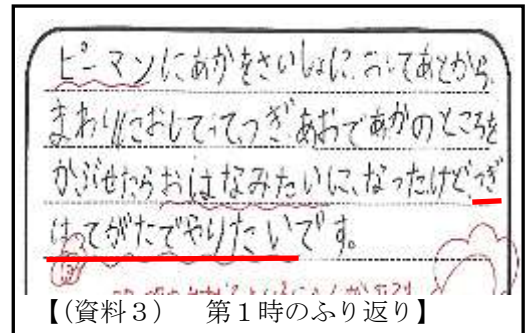 ピーマンにあかをさいしょに、おいてあとから、
まわりにおしてって、つぎあおであかのところを
かぶせたらおはなみたいに、なったけど、つぎ
はてがたでやりたいです。
【(資料３)　第１時のふり返り】